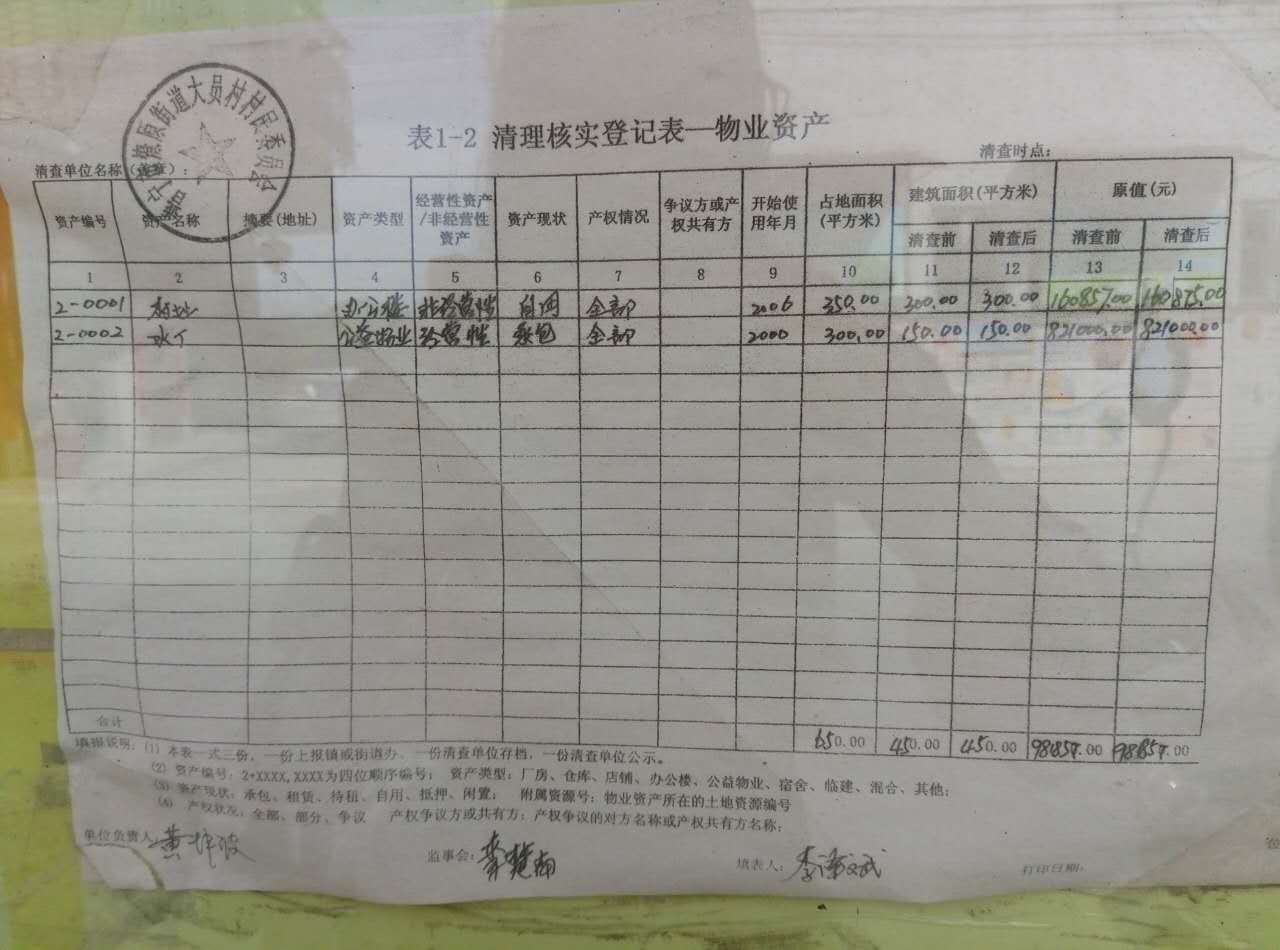 街道大员村村民委员会
表1-2 清理核实登记表—物业资产
清查单位名称(盖章): 清查时点:
资产编号 资产名称 摘要(地址) 资产类型 经营性资产/非经营性资产 资产现状 产权情况 争议方或产权共有方 开始使用年月 占地面积(平方米) 建筑面积(平方米) 原值(元)
清查前 清查后 清查前 清查后
1 2 3 4 5 6 7 8 9 10 11 12 13 14
2-0001 村址 办公楼 非经营性 自用 全部 2006 350.00 300.00 300.00 160857.00 160875.00
2-0002 水厂 公益物业 经营性 承包 全部 2000 300.00 150.00 150.00 821000.00 821000.00
合计 650.00 450.00 450.00 981857.00 981857.00
填报说明:(1) 本表一式三份,一份上报镇或街道办,一份清查单位存档,一份清查单位公示。
(2) 资产编号:2+XXXX,XXXX为四位顺序编号; 资产类型:厂房、仓库、店铺、办公楼、公益物业、宿舍、临建、混合、其他;
(3) 资产现状:承包、租赁、待租、自用、抵押、闲置; 附属资源号:物业资产所在的土地资源编号
(4) 产权状况:全部、部分、争议 产权争议方或共有方:产权争议的对方名称或产权共有方名称;
单位负责人: 黄 监事会: 填表人: 李 打印日期: